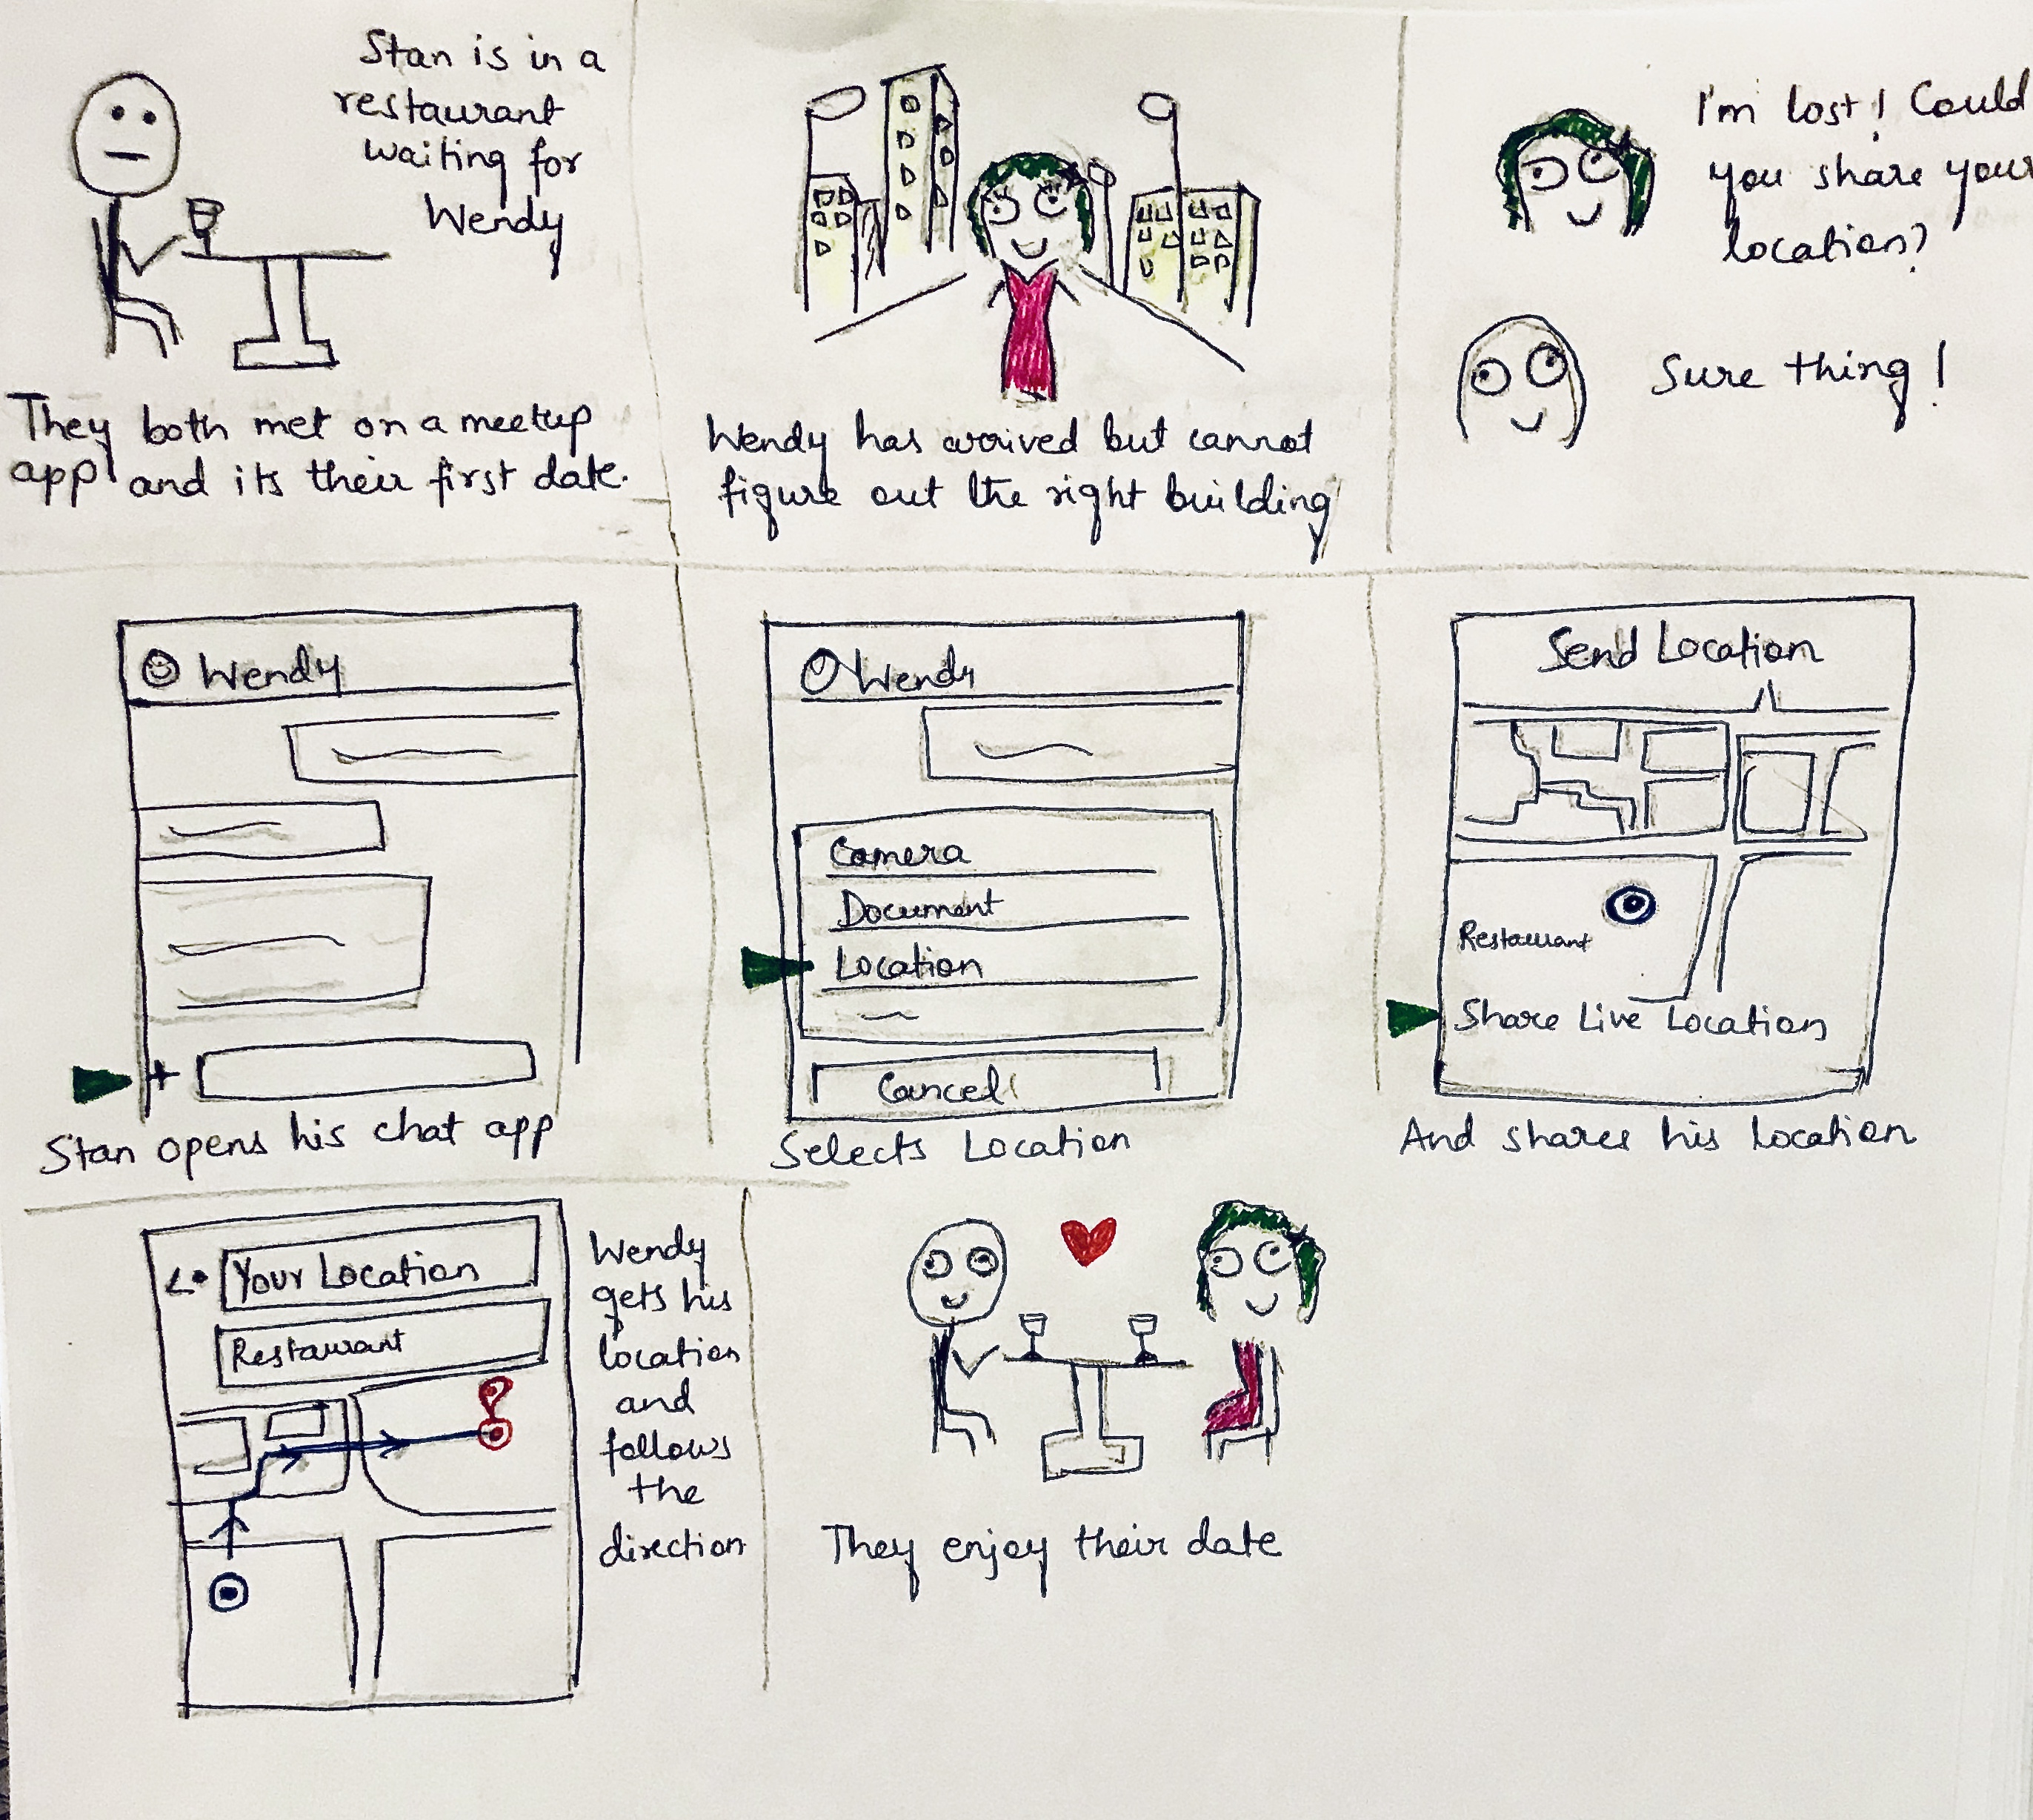 Stan is in a
restaurant
waiting for
Wendy
They both met on a meetup
app and its their first date.
Wendy has arrived but cannot
figure out the right building
I'm lost! Could
you share your
location?
Sure thing!
Wendy
+
Stan opens his chat app
Wendy
Camera
Document
Location
Cancel
Selects Location
Send Location
Restaurant
Share Live Location
And shares his location
Your Location
Restaurant
Wendy
gets his
location
and
follows
the
direction
They enjoy their date